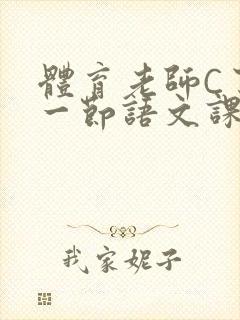 體育老師C
一節語文課
我家妮子